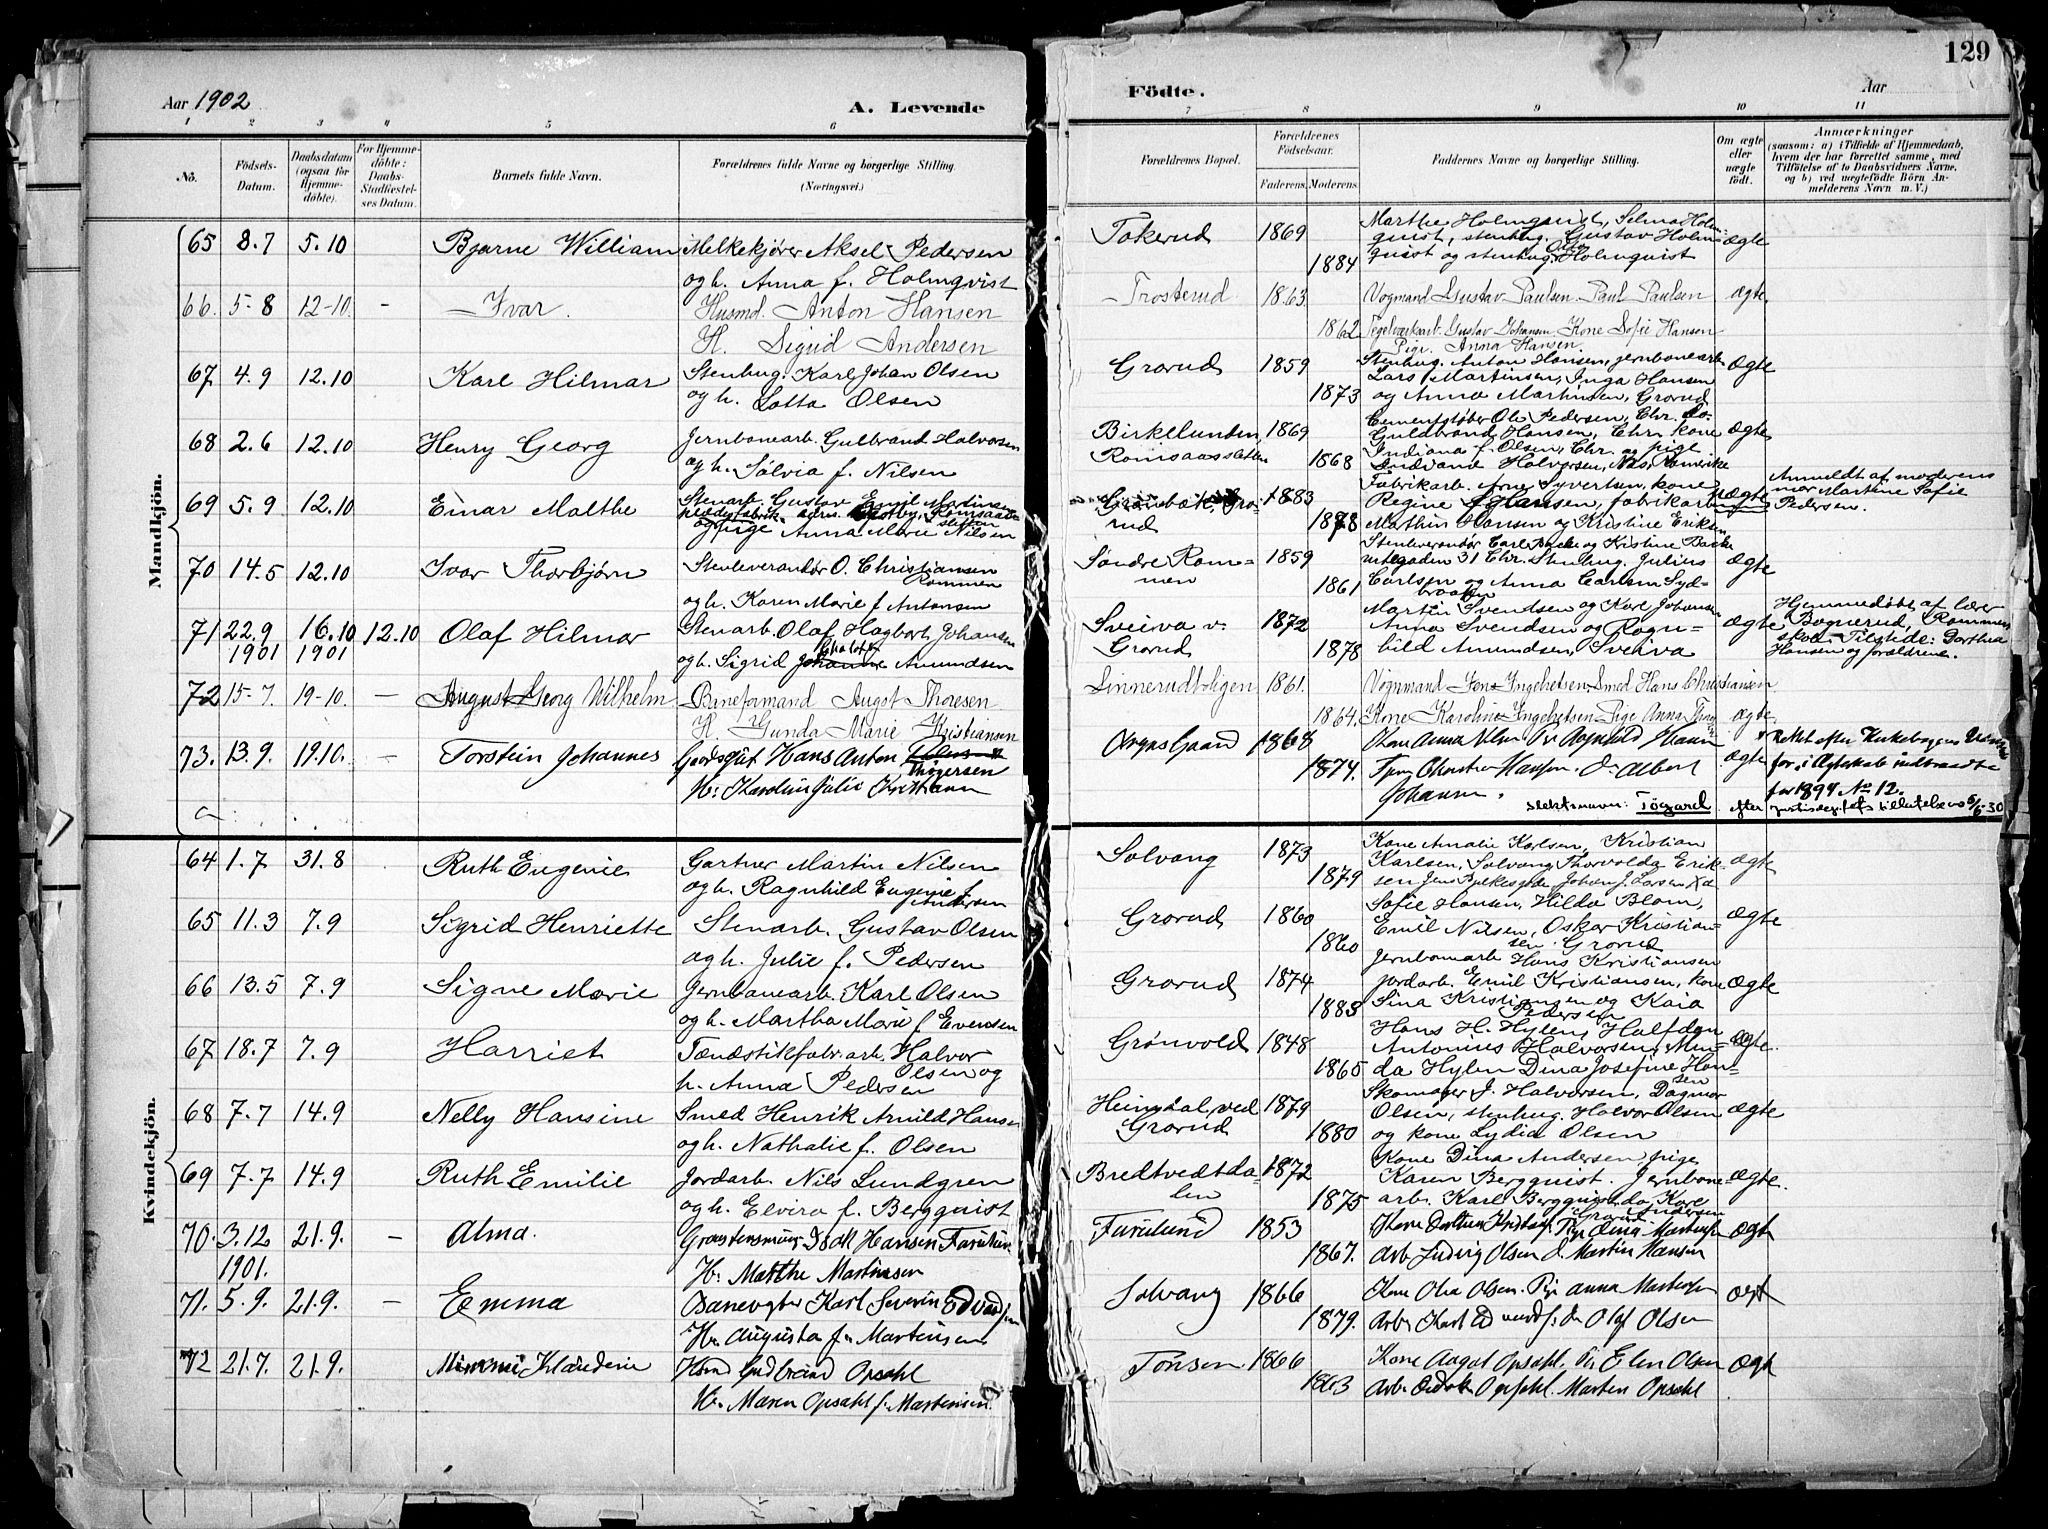 129
Aar 1902
A. Levende
Födte.
Aar
1 2 3 4 5 6 7 8 9 10 11
No. Födsels-Datum. Daabsdatum (ogsaa for Hjemmedöbte). For Hjemmedöbte: Daabs-Stadfæstelses Datum. Barnets fulde Navn. Forældrenes fulde Navne og borgerlige Stilling. (Næringsvei.) Forældrenes Bopæl. Forældrenes Födselsaar. Faderens. Moderens. Faddernes Navne og borgerlige Stilling. Om ægte eller uægte født. Anmærkninger (saasom: a) i Tilfælde af Hjemmedaab, hvem der har forrettet samme, med Tilföielse af to Daabsvidners Navne, og b) ved uægtefödte Börn Anmelderens Navn m. V.)
Mandkjön.
65 8.7 5.10 Bjarne William Melkekjører Aksel Pedersen
og h. Anna f. Holmqvist
Tokerud 1869 1884
Marthe Holmquist, Selma Holmquist, stenhug. Gustav Holmquist og stenhug. Holmquist
ægte
66. 5-8 12-10. - Ivar. Husmd. Anton Hansen
H. Sigrid Andersen
Trosterud 1863 1862
Vognmand Gustav Paulsen. Paul Paulsen
Teglværksarb. Gustav Johansen, Kone Sofie Hansen
Pige. Anna Hansen.
ægte
67 4.9 12.10 Karl Hilmar Stenhug. Karl Johan Olsen
og h. Lotta Olsen
Grorud 1859 1873
Stenhug. Anton Hansen, jernbanearb.
Lars Martinsen, Inga Hansen
og Anna Martinsen, Grorud
ægte
68 2.6 12.10 Henry Georg Jernbanearb. Gulbrand Halvorsen
og h. Sølvia f. Nilsen
Birkelunden, Romsaassletten 1869 1868
Cementstøber Ole Pedersen, Chr.
Guldbrand Hansen, Chr. kone
Indiana f. Olsen, Chr. og pige
Halvorsen, Nes, Romerike
ægte
69 5.9 12.10 Einar Malthe Stenarb. Gustav Emil Martinsen
og pige Anna Marie Nilsen
Grønbæk, Grorud 1883 1878
Fabrikarb. Arne Syvertsen, kone
Regine Hansen, fabrikarb.
Marthin Hansen og Kristine Eriksen
uægte
Anmeldt af moderens
mor Martine Sofie
Pedersen.
70 14.5 12.10 Ivar Thorbjørn Stenleverandør O. Christiansen
Rommen
og h. Karen Marie f. Antonsen
Søndre Rommen 1859 1861
Stenleverandør Carl Backe og Kristine Backe
31 Chr. Stenhug. Julius
Carlsen og Anna Carlsen
ægte
71 22.9 1901 16.10 1901 12.10 Olaf Hilmar Stenarb. Olaf Hagbart Johansen
Charlotte
og h. Sigrid Johanne Amundsen
Sveiva v. Grorud 1872 1878
Martin Svendsen og Kone Johanne
Anna Svendsen og Ragnhild Amundsen, Sveiva
ægte
Hjemmedøbt af lærer
Bognerud, Rommen
skole. Tilstede: Dorthea
Hansen og forældrene.
72 15-7 19-10. - August Georg Wilhelm Baneformand Augst Thoresen
H. Gunda Marie Kristiansen
Linnerudboligen 1861. 1864.
Vognmand Jens Ingebretsen Smed Hans Christiansen
Kone Karoline Ingebretsen Pige Anna
ægte
73. 13.9. 19.10. - Torstein Johannes Gaardsgut Hans Anton
Thøgersen
H. Karoline Julie Kristiansen
Gaard 1868 1874.
Kone Anna Ragnhild
Albert
Johansen.
Slektsnavn: Tögard. efter
ægte
Rettet efter Kirkebogens
for 1894 No 12.
6/6-30
Kvindekjön.
64 1.7 31.8 Ruth Eugenie Gartner Martin Nilsen
og h. Ragnhild Eugenie f.
Andersen
Solvang 1873 1879
Kone Amalie Karlsen, Kristian
Karlsen, Solvang, Thorvalda Eriksen
ægte
65 11.3 7.9 Sigrid Henriette Stenarb. Gustav Olsen
og h. Julie f. Pedersen
Grorud 1860 1860
Sofie Hansen, Hilda Blom,
Emil Nilsen, Oskar Kristiansen Grorud
ægte
66 13.5 7.9 Signe Marie Jernbanearb. Karl Olsen
og h. Martha Marie f. Evensen
Grorud 1874 1883
Jernbanearb. Hans Kristiansen
Jordarb. Emil Kristiansen, kone
Sina Kristiansen og Kaia
Pedersen
ægte
67 18.7 7.9 Harriet Tændstikfabr.arb. Halvor
Olsen og
h. Anna Pedersen
Grønvold 1848 1865
Hans H. Hylen, Halfdan
Antonius Halvorsen, Menda Hylen, Dina Josefine Hansen
ægte.
68 7.7 14.9 Nelly Hansine Smed Henrik Arnild Hansen
og h. Nathalie f. Olsen
Heimdal, ved Grorud 1879 1880
Skomager J. Halvorsen, Dagmar
Olsen, stenhug. Halvor Olsen
og kone Lydia Olsen
ægte
69 7.7 14.9 Ruth Emilie Jordarb. Nils Lundgren
og h. Elvira f. Bergquist
Bredtvedtdalen 1872 1875
Kone Dina Andersen, pige
Karen Bergquist, Jernbanearb. Karl Bergquist
ægte.
70. 3.12 1901. 21.9. - Alma.
Hansen Furulund
H. Marthe Martinsen
Furulund 1853 1867.
Pige Dina Martinsen
Arb Ludvig Olsen d. Martin Hansen
ægt
71. 5.9. 21.9. - Emma Banevogter Karl Severin Edvardsen
H. Augusta f. Martinsen
Solvang 1866 1879.
Kone Olva Olsen. Pige Anna Martinsen
Arb. Karl Edvardsen Olaf Olsen
ægt
72 21.7. 21.9. Minmi Klaudine Gudbrand Opsahl
H. Maren Opsahl f. Martinsen.
Tonsen 1866 1863
Kone Aagot Opsahl. Pig Elen Olsen
Arb. Opsahl. Martin Opsahl
ægt